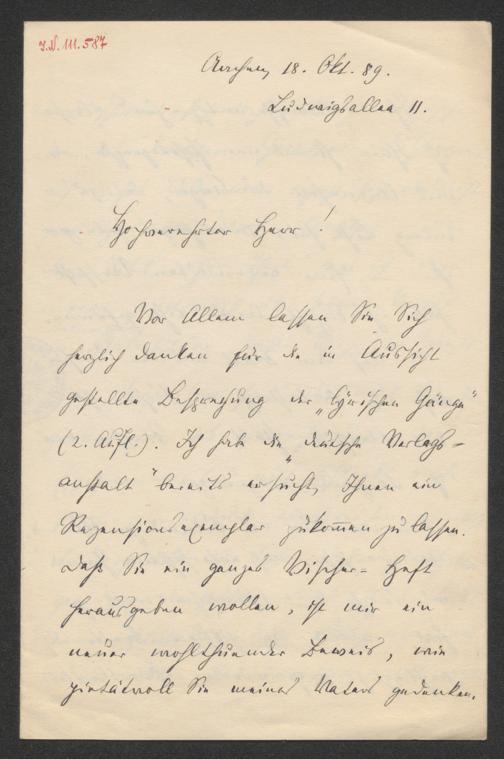 J.N. 111.587
Aachen, 18. Okt. 89.
Ludwigsallee 11.
Hochverehrter Herr!
Vor Allem lassen Sie Sich
herzlich danken für die in Aussicht
gestellte Besprechung der „Lyrischen Gänge"
(2. Aufl.). Ich habe die „deutsche Verlags-
anstalt" bereits ersucht, Ihnen ein
Rezensionsexemplar zukom̅en zu lassen.
Daß Sie ein ganzes Vischer-Heft
herausgeben wollen, ist mir ein
neuer wohlthuender Beweis, wie
pietätvoll Sie meines Vaters gedenken.